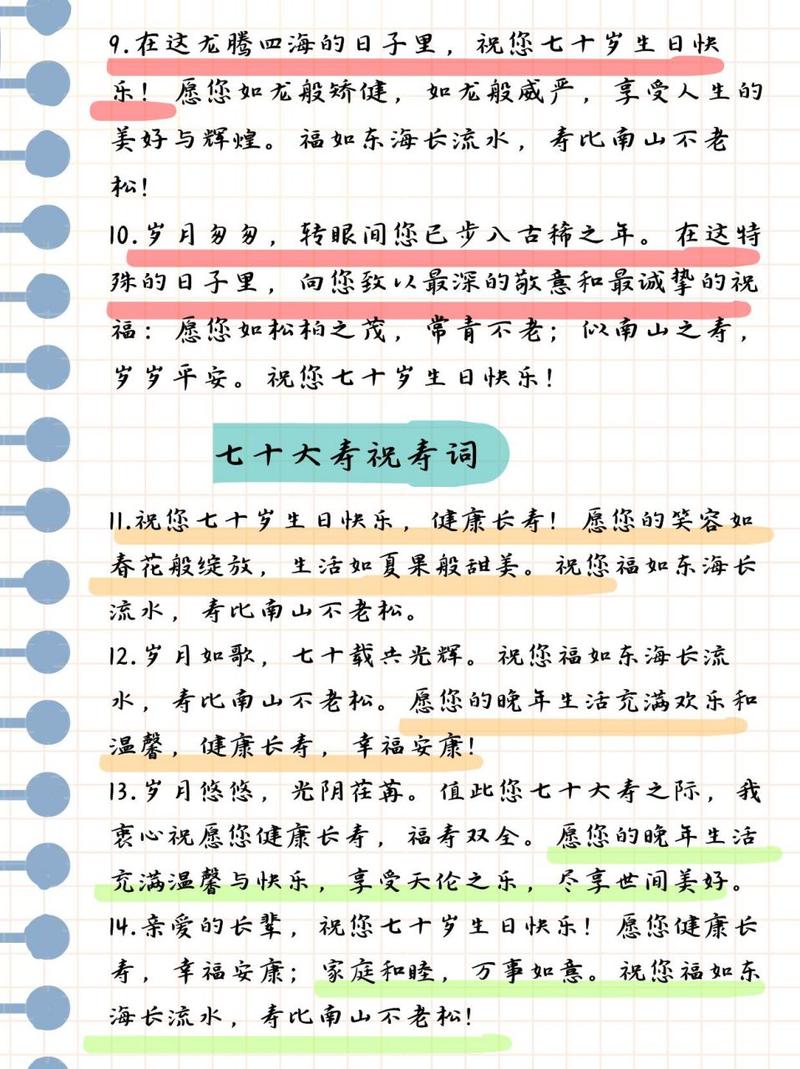 9.在这龙腾四海的日子里，祝您七十岁生日快
乐！愿您如龙般矫健，如龙般威严，享受人生的
美好与辉煌。福如东海长流水，寿比南山不老
松！
10.岁月匆匆，转眼间您已步入古稀之年。在这特
殊的日子里，向您致以最深的敬意和最诚挚的祝
福：愿您如松柏之茂，常青不老；似南山之寿，
岁岁平安。祝您七十岁生日快乐！
七十大寿祝寿词
11.祝您七十岁生日快乐，健康长寿！愿您的笑容如
春花般绽放，生活如夏果般甜美。祝您福如东海长
流水，寿比南山不老松。
12.岁月如歌，七十载共光辉。祝您福如东海长流
水，寿比南山不老松。愿您的晚年生活充满欢乐和
温馨，健康长寿，幸福安康！
13.岁月悠悠，光阴荏苒。值此您七十大寿之际，我
衷心祝愿您健康长寿，福寿双全。愿您的晚年生活
充满温馨与快乐，享受天伦之乐，尽享世间美好。
14.亲爱的长辈，祝您七十岁生日快乐！愿您健康长
寿，幸福安康；家庭和睦，万事如意。祝您福如东
海长流水，寿比南山不老松！